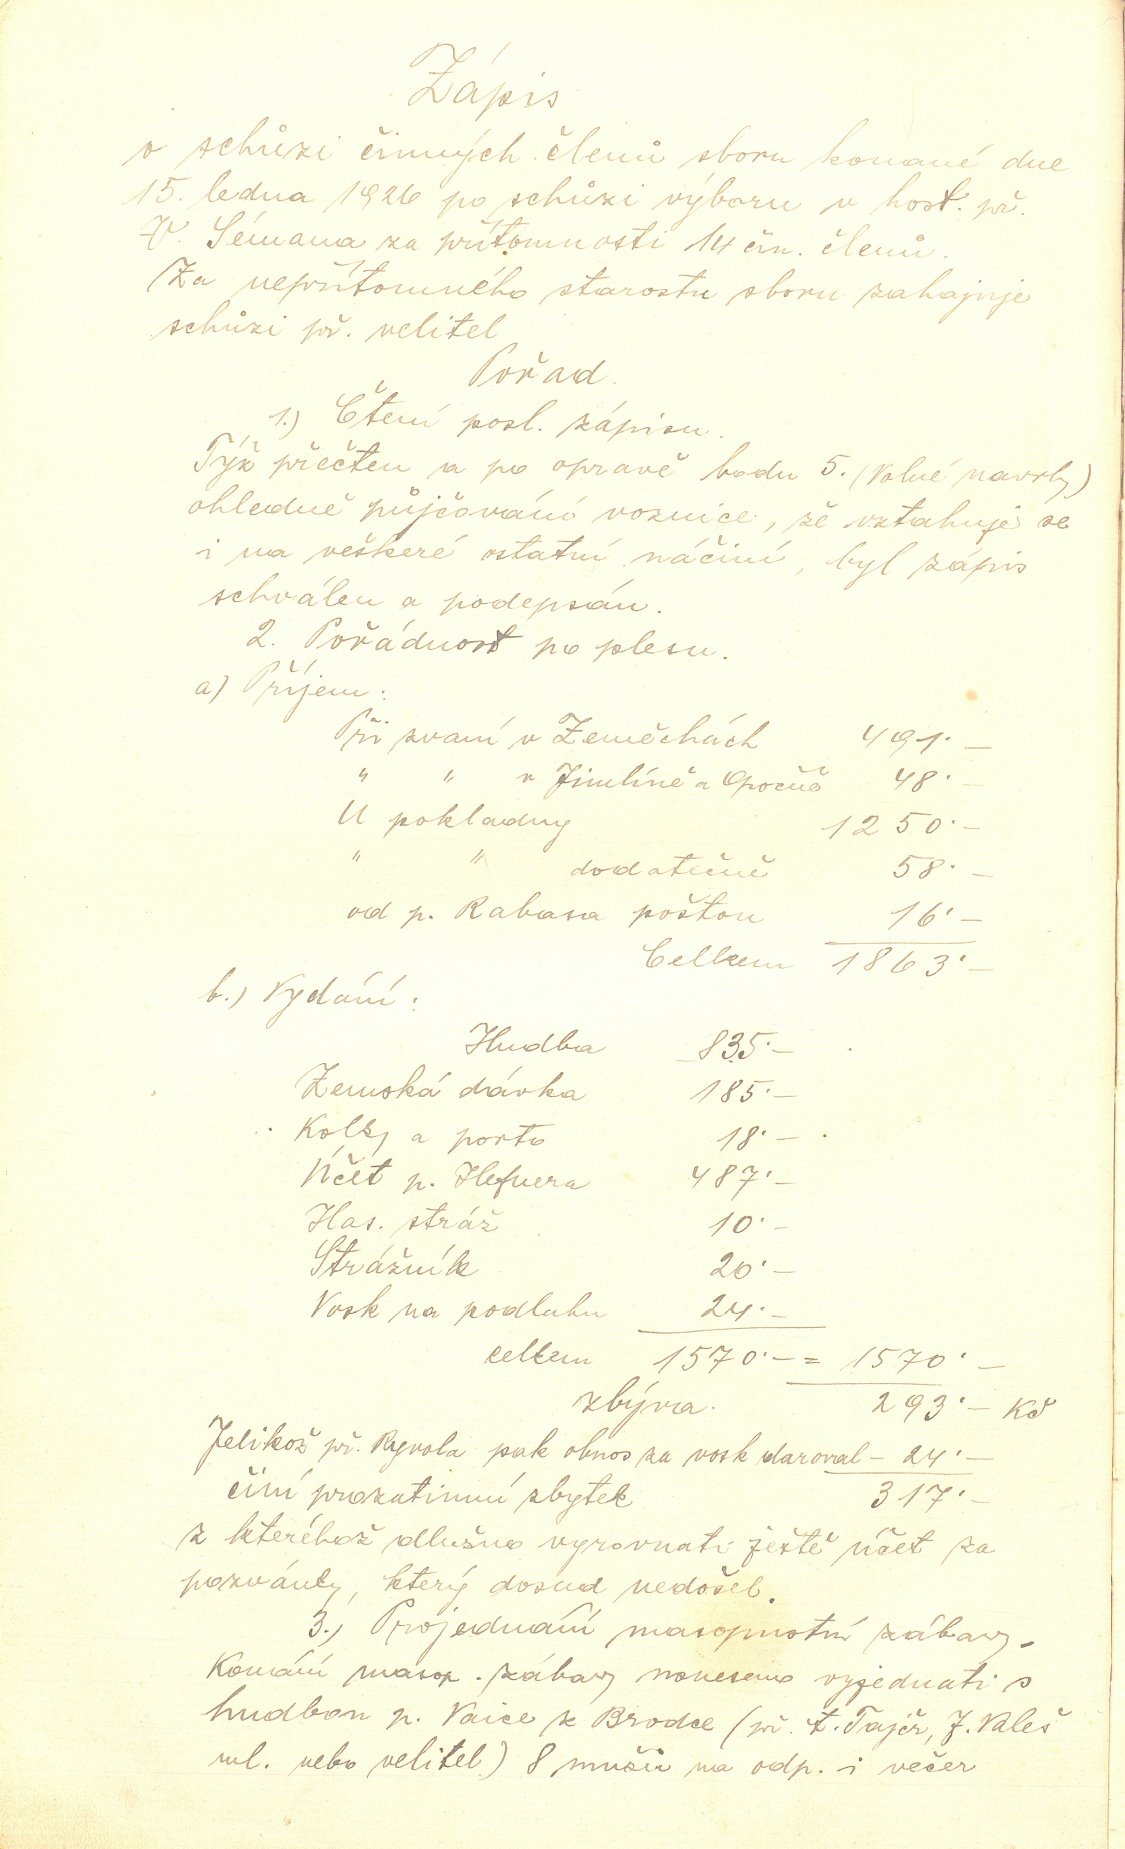 Zápis
o schůzi činných členů sboru konané dne
15. ledna 1926 po schůzi výboru v host. př.
V. Sémana za přítomnosti 14 čin. členů.
Za nepřítomného starostu sboru zahajuje
schůzi př. velitel
Pořad.
1.) Čtení posl. zápisu.
Týž přečten a po opravě bodu 5. (Volné navrhy)
ohledně půjčování voznice, že vztahuje se
i na veškeré ostatní náčiní, byl zápis
schválen a podepsán.
2. Pořádnost po plesu.
a) Příjem:
Při zvaní v Zeměchách 491·–
" " v Jimlíně a Opočně 48·–
U pokladny 1250·–
" " dodatečně 58·–
od p. Rabasa poštou 16·–
Celkem 1863·–
b.) Vydání:
Hudba 835·–
Zemská dávka 185·–
Kolky a porto 18·–
Účet p. Hefnera 487·–
Has. stráž 10·–
Strážník 20·–
Vosk na podlahu 24·–
celkem 1570·– = 1570·–
zbývá. 293·– Kč
Jelikož př. Ryvola pak obnos za vosk daroval – 24·–
činí prozatimní zbytek 317·–
z kteréhož dlužno vyrovnati ještě účet za
pozvánky, který dosud nedošel.
3.) Projednání masopustní zábavy.
Konání masop. zábavy usneseno vyjednati s
hudbou p. Vaice z Brodce (př. t. Tajčr, J. Valeš
ml. nebo velitel) 8 mužů na odp. i večer